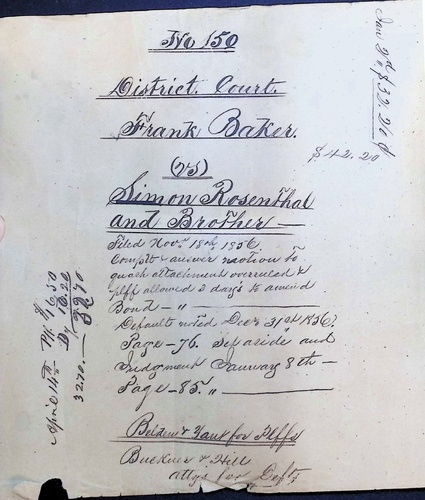 No 150
District Court.
Frank Baker.
(vs)
Simon Rosenthal
and Brother —
Filed Novr 18th 1856.
Complt & answer motion to
quash attachment overruled &
plff allowed 2 days to amend
Bond — " —
Default noted Decr 31st 1856.
Page — 76. Set aside and
Judgment January 8th —
Page — 85. " —
& Yank for Plffs
Buckner & Hill
attys for Defts
Jan 2nd $32.20
$42.20
April 14th
$16.50
16.20
32.70
32.70